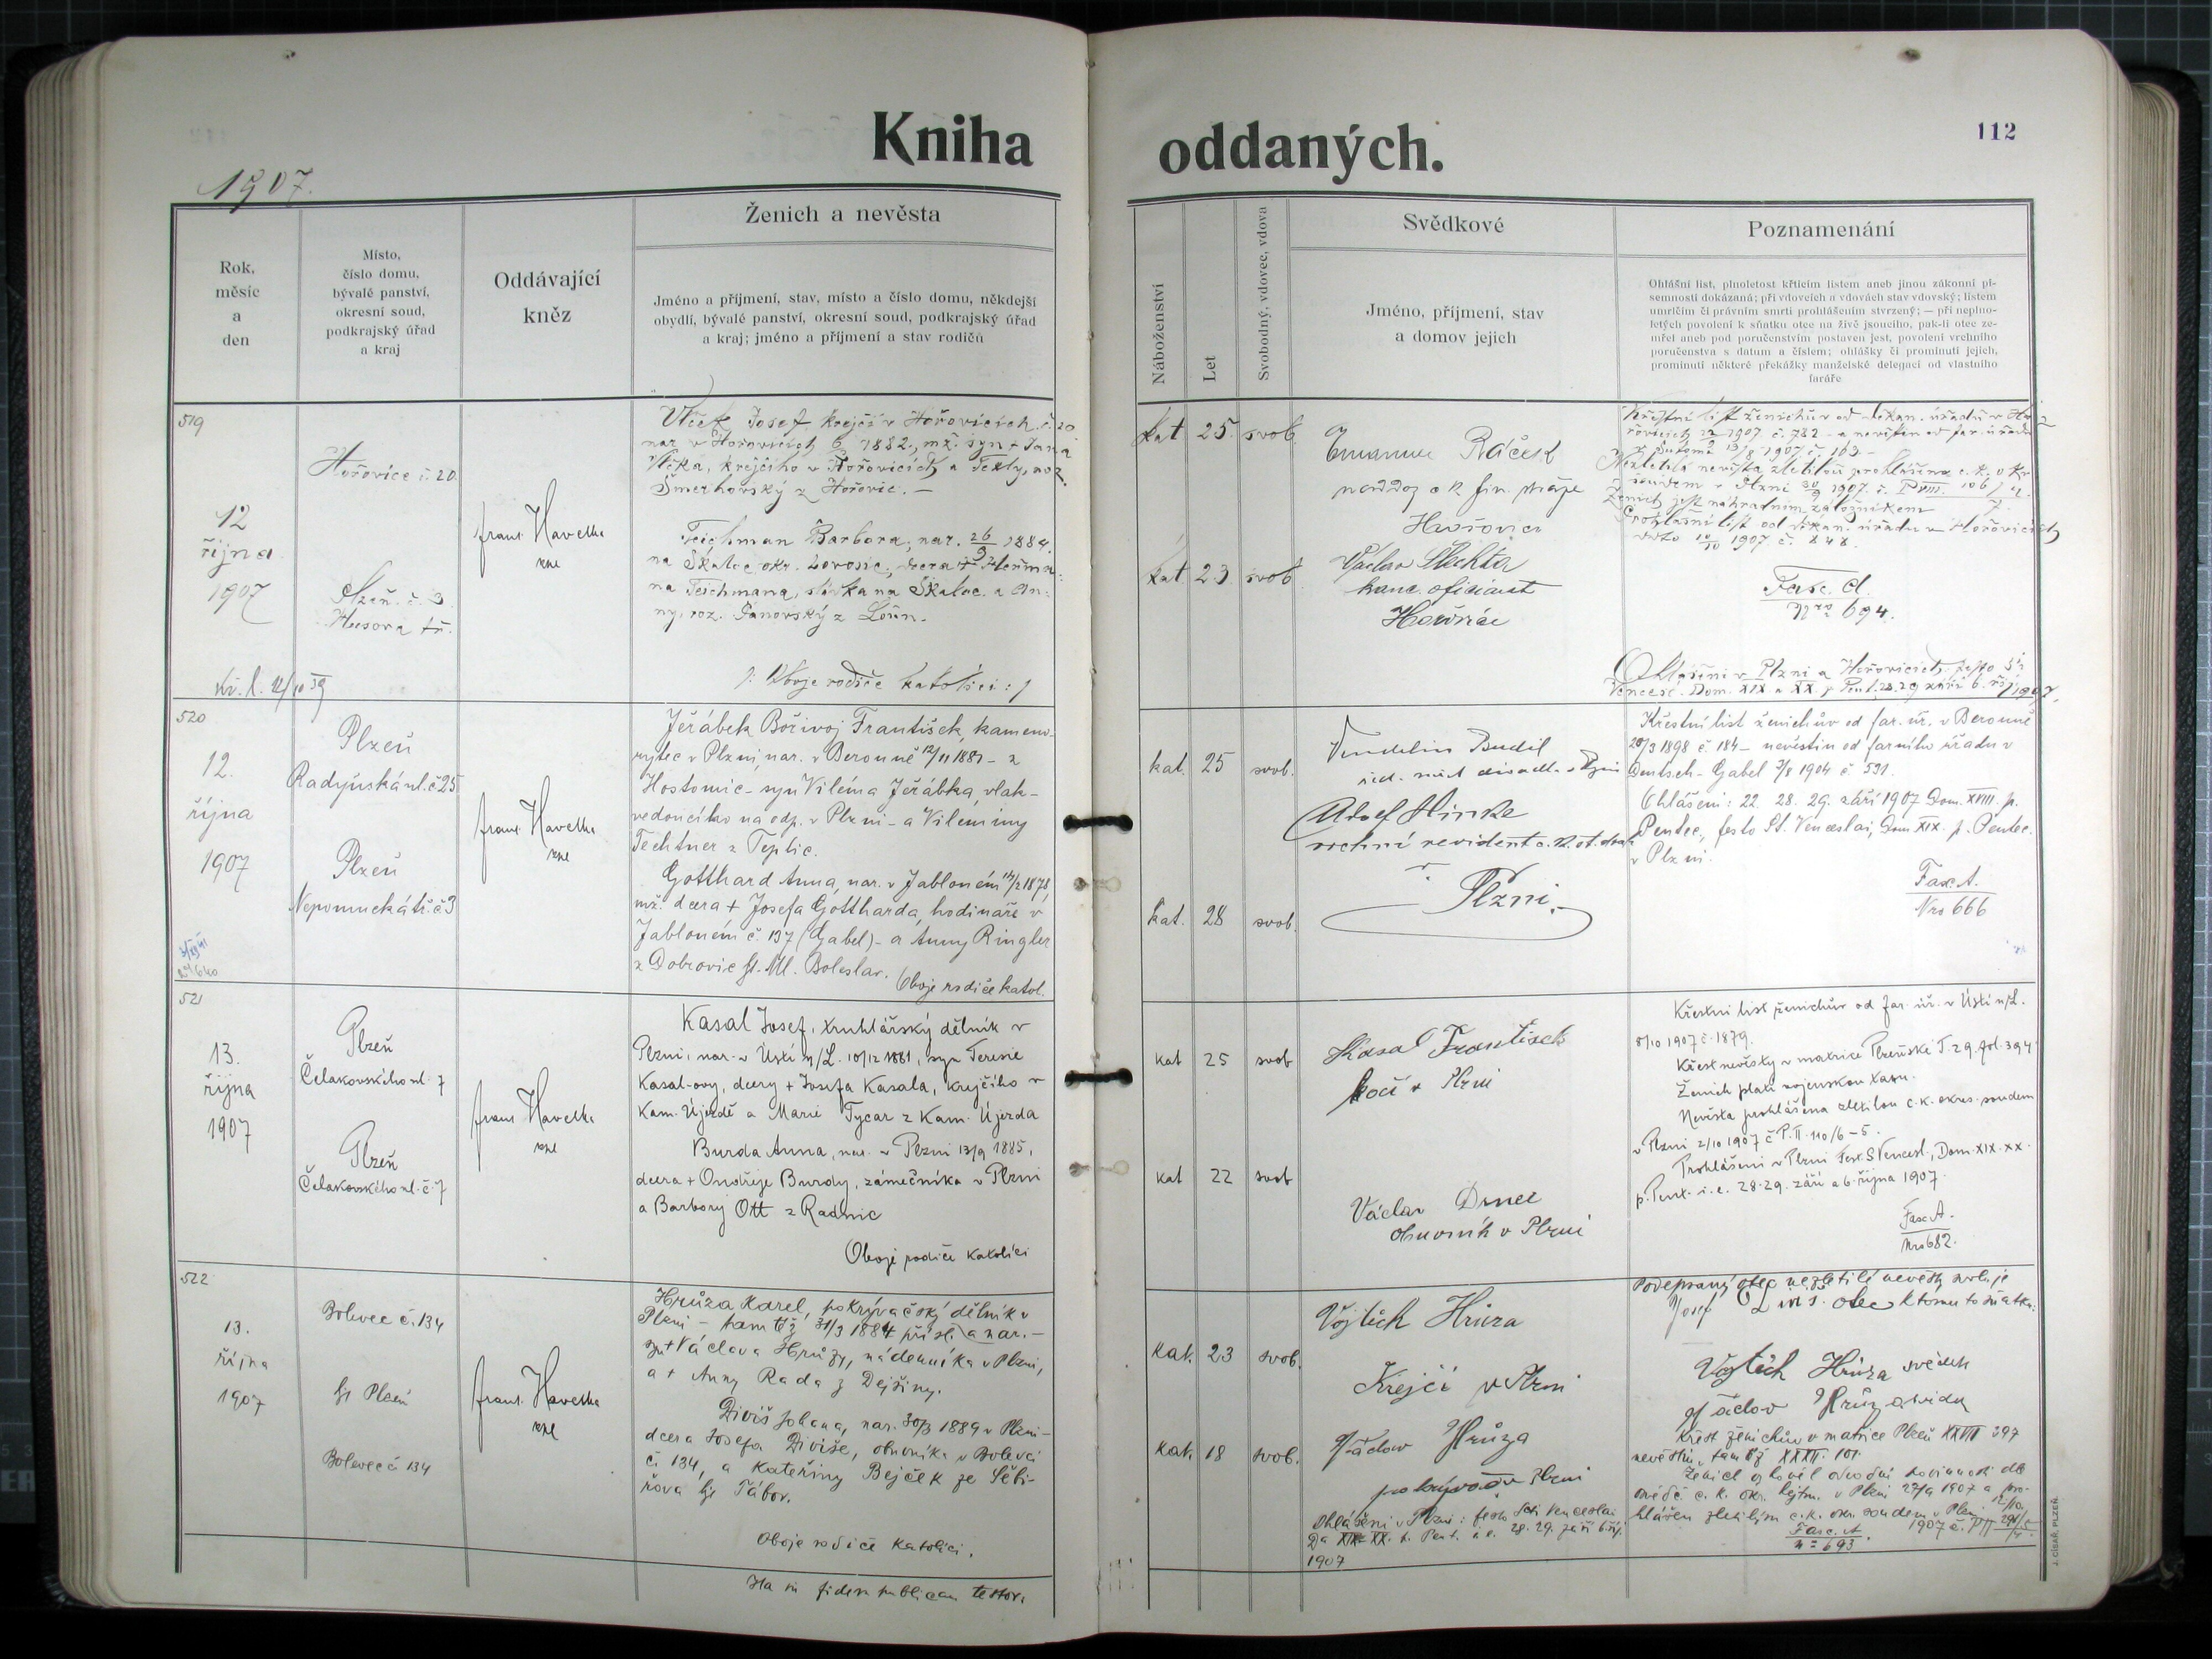 Kniha oddaných.
112
1907.
Rok, měsíc a den
Místo, číslo domu, bývalé panství, okresní soud, podkrajský úřad a kraj
Oddávající kněz
Ženich a nevěsta
Jméno a příjmení, stav, místo a číslo domu, někdejší
obydlí, bývalé panství, okresní soud, podkrajský úřad
a kraj; jméno a příjmení a stav rodičů
Náboženství
Let
Svobodný, vdovec, vdova
Svědkové
Jméno, příjmení, stav
a domov jejich
Poznamenání
Ohlášní list, plnoletost křticím listem aneb jinou zákonní pí-
semností dokázaná; při vdovcích a vdovách stav vdovský; listem
umrlčím či právním smrti prohlášením stvrzený; — při neplno-
letých povolení k sňatku otce na živě jsoucího, pak-li otec ze-
mřel aneb pod poručenstvím postaven jest, povolení vrchního
poručenstva s datum a číslem; ohlášky či prominutí jejich,
prominutí některé překážky manželské delegací od vlastního
faráře
519
12
října
1907
Hořovice č. 20.
Plzeň č. 3
Husova tř.
Frant. Havelka
Vlček Josef, krejčí v Hořovicích č. 20
nar. v Hořovicích 1882, mž. syn + Jana
Vlčka, krejčího v Hořovicích a Tekly, roz.
z Hořovic. —
Teichman Barbora, nar. 26/9 1884.
na Skalce okr. Lovosic, dcera
na Teichmana, na Skalce a An-
ny, roz. Janovský z Loun.
/: Oboje rodiče katolíci :/
kat 25. svob.
kat 23. svob.
Emanuel Ráček
fin. stráže
Hořovice
Václav Šlechta
kanc. oficiant
Hořovice
Křestní list ženichův od děkan. úřadu v Ho-
řovicích 1907 č. 782 – a nevěstin od far. úřadu
Nezletilá nevěsta zletilou prohlášena c. k. okr.
soudem v Plzni 30/9 1907 č. P VIII. 106/7
Ženich jest náhradním záložníkem
Prohlašní list od děkan. úřadu v Hořovicích
dtto 10/10 1907 č. 848.
Fasc. A.
Nro 694.
Ohlášeni v Plzni a Hořovicích festo St.
Vencesl. Dom. XIX. a XX. p. Pent. 28. 29 září 6. říj. 1907.
520
12.
října
1907
Plzeň
Radyňská ul. č 25
Plzeň
Nepomucká tř. č 3
Frant. Havelka
Jeřábek Bořivoj František, kameno-
rytec v Plzni, nar. v Berouně 12/11 1881 – z
Hostomic – syn Viléma Jeřábka, vlak-
vedoucího na odp. v Plzni – a Vilemíny
Techtner z Teplic.
Gotthard Anna, nar. v Jabloném 14/2 1878,
mž. dcera + Josefa Gottharda, hodináře v
Jabloném č. 137 (Gabel) – a Anny Ringler
z Dobrovic hj. Ml. Boleslav. Oboje rodiče katol.
kat. 25 svob.
kat. 28 svob.
Vendelín Budil
řed. měst. divadla v Plzni
Adolf Hinke
vrchní revident c. k. st. drah
v Plzni.
Křestní list ženichův od far. úř. v Berouně
20/3 1898 č. 184 – nevěstin od farního úřadu v
Deutsch-Gabel 7/8 1904 č. 591.
Ohlášeni: 22. 28. 29. září 1907 Dom. XVIII. p.
Pentec., festo St. Venceslai, Dom. XIX. p. Pentec.
v Plzni.
Fasc. A.
Nro 666
521
13.
října
1907
Plzeň
Čelakovského ul. 7
Plzeň
Čelakovského ul. č. 7
Frant. Havelka
Kasal Josef, truhlářský dělník v
Plzni, nar. v Ústí n/L. 10/12 1881, syn Teresie
Kasal-ovy, dcery + Josefa Kasala, krejčího v
Kam. Újezdě a Marie Tycar z Kam. Újezda
Burda Anna, nar. v Plzni 13/9 1885,
dcera + Ondřeje Burdy, zámečníka v Plzni
a Barbory Ott z Radnic
Oboji rodiče katolíci
kat 25 svob
kat 22 svob
Kasal František
kočí v Plzni
Václav Drnec
obuvník v Plzni
Křestní list ženichův od far. úř. v Ústí n/L.
8/10 1907 č. 1879.
Křest nevěsty v matrice Plzeňské T. 29. fol. 394
Ženich platí vojenskou taxu.
Nevěsta prohlášena zletilou c. k. okres. soudem
v Plzni 2/10 1907 č. P. II. 110/6–5.
Prohlášeni v Plzni Fest. S. Vencesl., Dom. XIX. XX.
p. Pent. i. e. 28. 29. září a 6. října 1907.
Fasc. A.
Nro 682.
522
13.
října
1907
Bolevec č. 134
hj Plzeň
Bolevec č 134
Frant. Havelka
Hrůza Karel, pokrývačský dělník v
Plzni – tamtéž 31/3 1884 přísl. a nar. –
syn + Václava Hrůzy, nádeníka v Plzni,
a + Anny Rada z Dejšiny.
Diviš Johana, nar. 30/3 1889 v Plzni –
dcera Josefa Diviše, obuvníka v Bolevci
č. 134, a Kateřiny Bejček ze Sěbi-
řova hj Tábor.
Oboje rodiče katolíci.
Ita in fidem publicam testor.
kat. 23 svob.
kat. 18 svob.
Vojtěch Hrůza
Krejčí v Plzni
Václav Hrůza
pokrývač v Plzni
Ohlášeni v Plzni: festo Scti Venceslai
Da XIX. XX. p. Pent. i. e. 28. 29. září 6 říj.
1907
Podepsaný otec nezletilé nevěsty svoluje
Josef Diviš. otec k tomuto sňatku:
Vojtěch Hrůza svědek
Václav Hrůza svědek
Křest ženichův v matrice Plzeň XXVII 397
nevěstin tamtéž XXXII. 101.
Ženich vyhověl odvodní povinnosti dle
osvědč. c. k. okr. hejtm. v Plzni 27/9 1907 a pro-
hlášen zletilým c. k. okr. soudem v Plzni 12/10.
1907 č. P II 291/5
Fasc. A
n= 693.
J. CÍSAŘ, PLZEŇ.